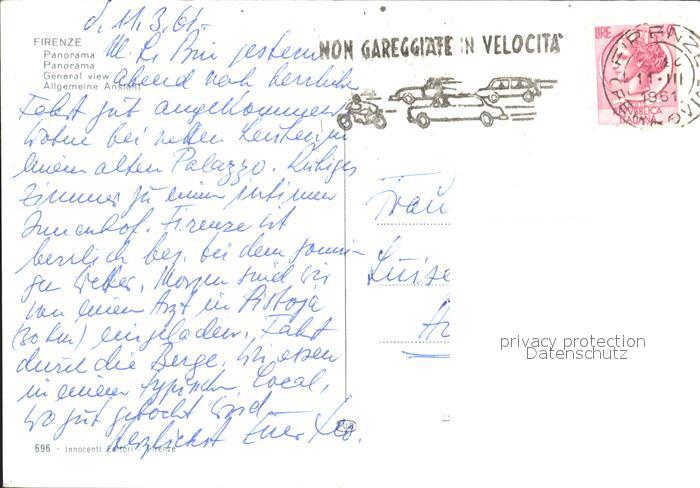 d. 11.3.61.
FIRENZE
Panorama
Panorama
General view
Allgemeine Ansicht
M. L. Bin gestern
abend nach herrlicher
Fahrt gut angekommen
Wohne bei netten Leuten in
einem alten Palazzo. Ruhiges
Zimmer zu einem intimen
Innenhof. Firenze ist
herrlich bes. bei dem sonni-
gen Wetter. Morgen sind wir
von einem Arzt in Pistoja
(30 km) eingeladen. Fahrt
durch die Berge. Wir essen
in einem typischen Local,
wo gut gekocht wird
herzlichst Euer Leo.
696 - Innocenti Editori - Firenze
NON GAREGGIATE IN VELOCITA'
LIRE
FIRENZE
11-III
1961
REPUBBLICA
ITALIANA
Frau
Luise
privacy protection
Datenschutz